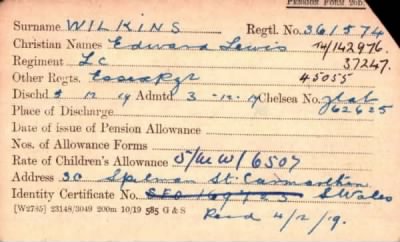 PENSION FORM 26D.
Surname WILKINS Regtl. No. 361574
Christian Names Edward Lewis T4/142976.
Regiment LC 37247.
Other Regts. Essex Rgt 45055
Dischd 5 12 19 Admtd 3-12-19 Chelsea No.
62625
Place of Discharge
Date of issue of Pension Allowance
Nos. of Allowance Forms
Rate of Children's Allowance 5/MW/6507
Address 30 Spilman St. Carmarthen
Identity Certificate No. S Wales
[W2785] 23148/3049 200m 10/19 585 G & S
4/12/19.